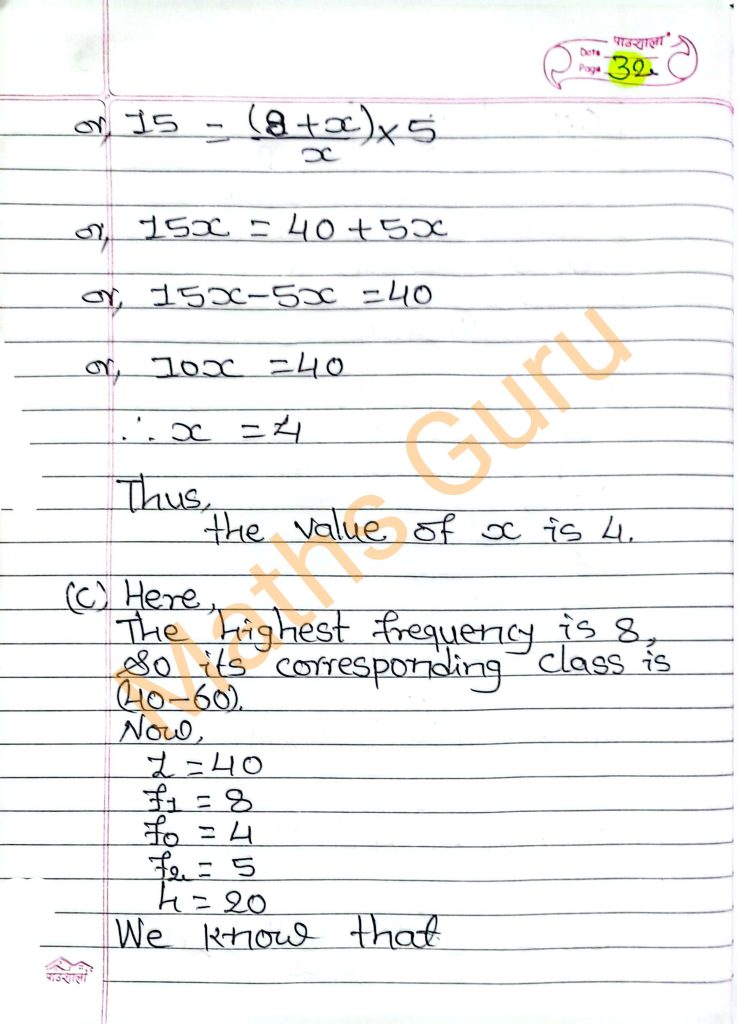 पाठशाला
Date
Page 32
or, 15 = (8+x)/x × 5
or, 15x = 40 + 5x
or, 15x - 5x = 40
or, 10x = 40
∴ x = 4
Thus,
the value of x is 4.
(c) Here,
The highest frequency is 8,
so its corresponding class is
(40-60).
Now,
L = 40
f₁ = 8
f₀ = 4
f₂ = 5
h = 20
We know that
पाठशाला
Maths Guru